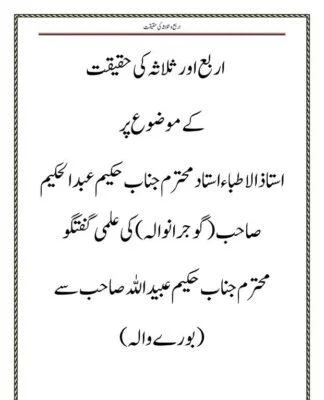 اربع و ثلاثہ کی حقیقت
اربع اور ثلاثہ کی حقیقت
کے موضوع پر
استاذ الاطباء استاد محترم جناب حکیم عبدالحکیم
صاحب (گوجرانوالہ) کی علمی گفتگو
محترم جناب حکیم عبیداللہ صاحب سے
(بورے والہ)